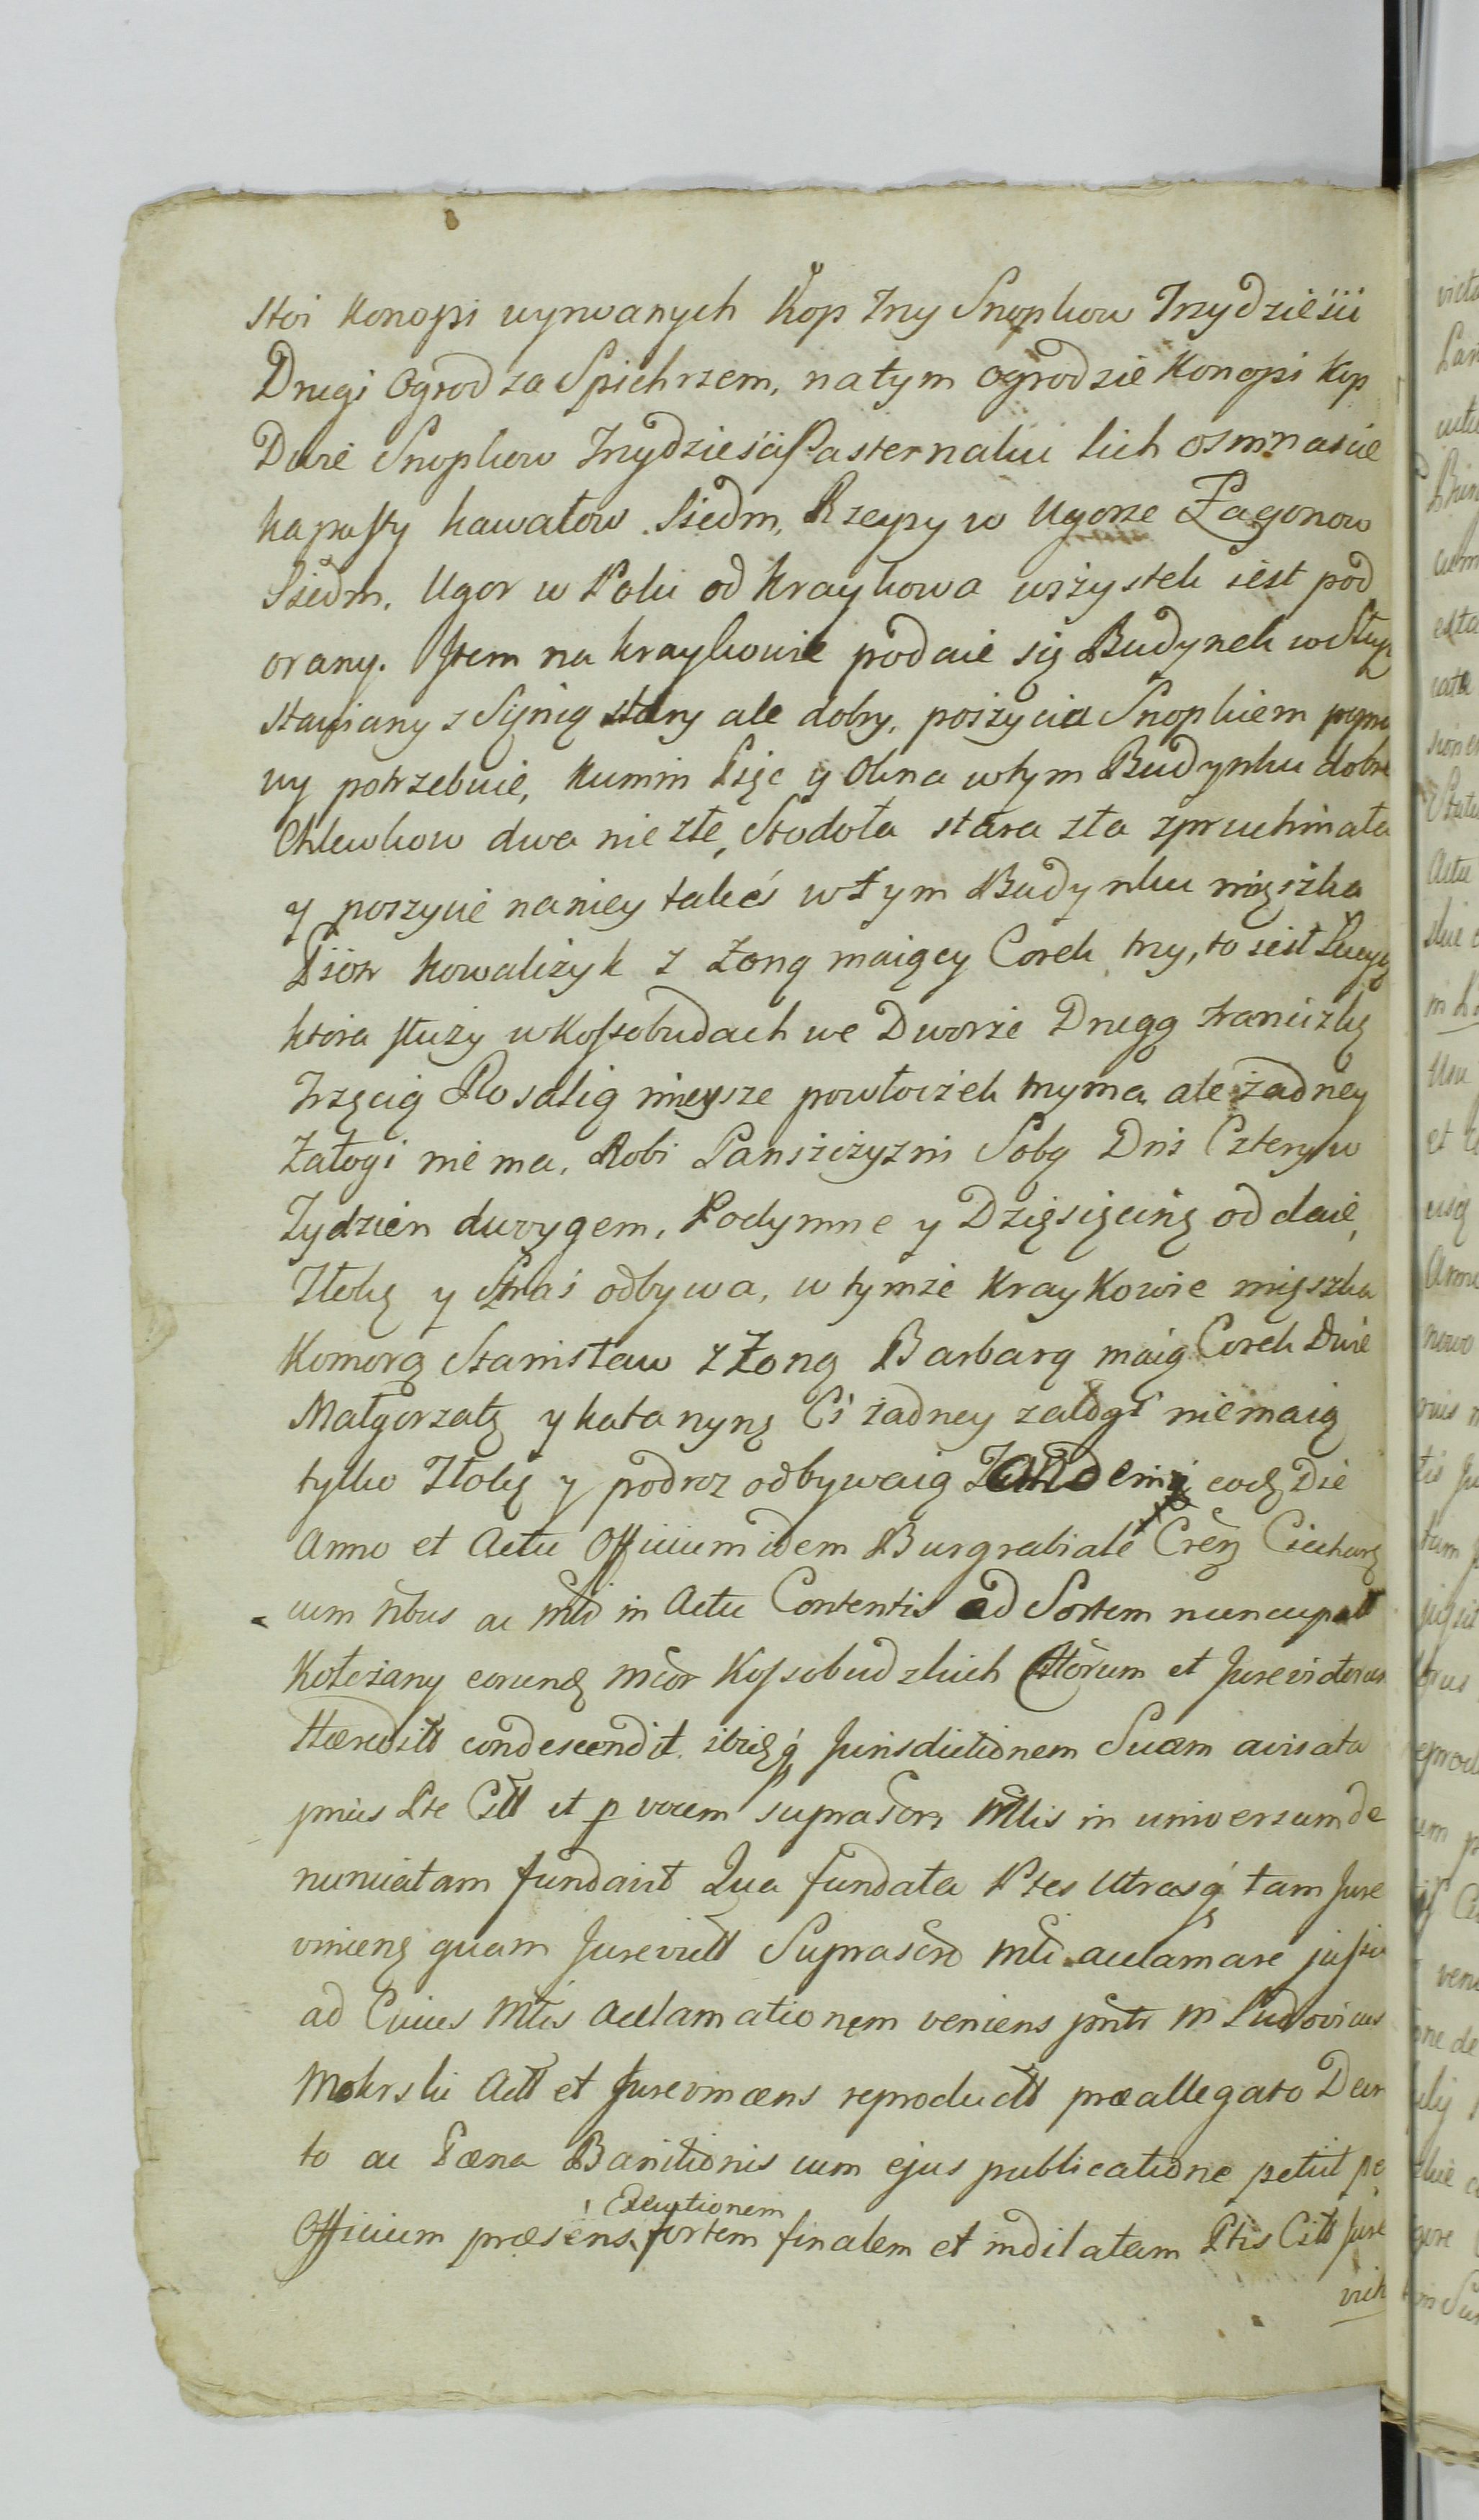 stoi Konopi wyrwanych Kop trzy Snopkow Trzydziesci
Drugi Ogrod za Spichrzem, natym ogrodzie Konopi Kop
Dwie Snopkow Trzydziesci Pasternaku lich osmnascie
kapusty kawałow Siedm, Rzepy w Ugorze Zagonow
Siedm. Ugor w Polu od Kraykowa wszystek iest pod
orany. Item na Kraykowie podaie się Budynek w
stawiany z Siynią stary ale dobry, poszycia Snopkiem
wy potrzebuie, Kumin Pięc y Okna wtym Budynku dobre
Chlewkow dwa nie złe, Stodoła stara zła zpruchniała
y poszycie naniey takeś wtym Budynku mięszka
Piotr Kowalczyk z Zoną maiący Corek trzy, to iest Łucyą
ktora służy w Kossobudach we Dworze Drugą Franciszkę
Trzęcią Rosalią mieysze powłoczek trzy ma ale żadney
Załogi nie ma, Robi Pansżczyzni Sobą Dni Cztery w
Tydzien dwoygem, Podymne y Dzięsięcinę oddaie,
Tłokę y Straż odbywa, w tymże Kraykowie mięszka
Komorą Stanisław z Zoną Barbarą maią Corek Dwie
Małgorzatę y Katarynę Ci żadney załogi niemaią
tylko Tłokę y podroz odbywaią Tandem eodę Die
Anno et Actu Officium idem Burgrabiale Cren Ciechanę
cum nbus ac Mtli in Actu Contentis ad Sortem nuncupatt
Kołeżany eorundę Mcor Kossobudzkich Cittorum et Jurevictorum
Hæreditt condescendit ibidę q Jurisdictionem Suam avisata
prius Pte Citt et p vocem suprascri Mtlis in universum de
nunciatam fundavit Qua fundata Ptes Utrasq tam Jure
vincenę quam Jurevictt Suprascro Mtli acclamare jussit
ad Cuius Mtlis Acclamationem veniens pntr M Ludovicus
Mokrski Actt et Jurevincens reproductt præallegato Decre
to ac Pæna Banitionis cum ejus publicatione petiit pe
Officium præsens Executionem fortem finalem et indilatam Ptis Citt Jure
vict